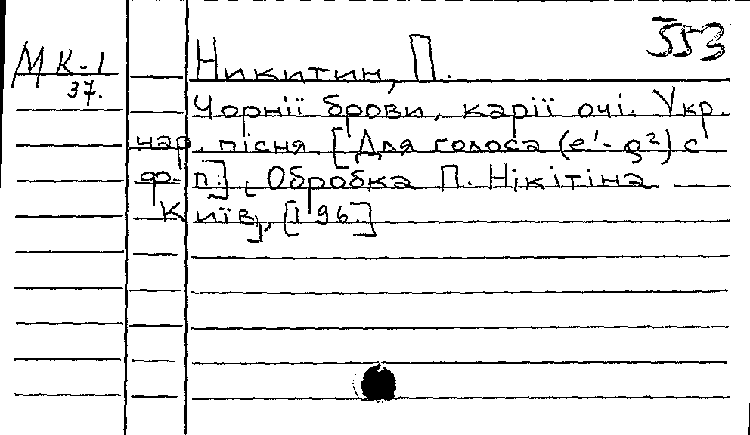 553
МК-1 Никитин, П.
37.
Чорнії брови, карії очі. Укр.
нар. пісня. [Для голоса (e¹-g²) с
ф-п.]. Обробка П. Нікітіна
Київ, [196.]